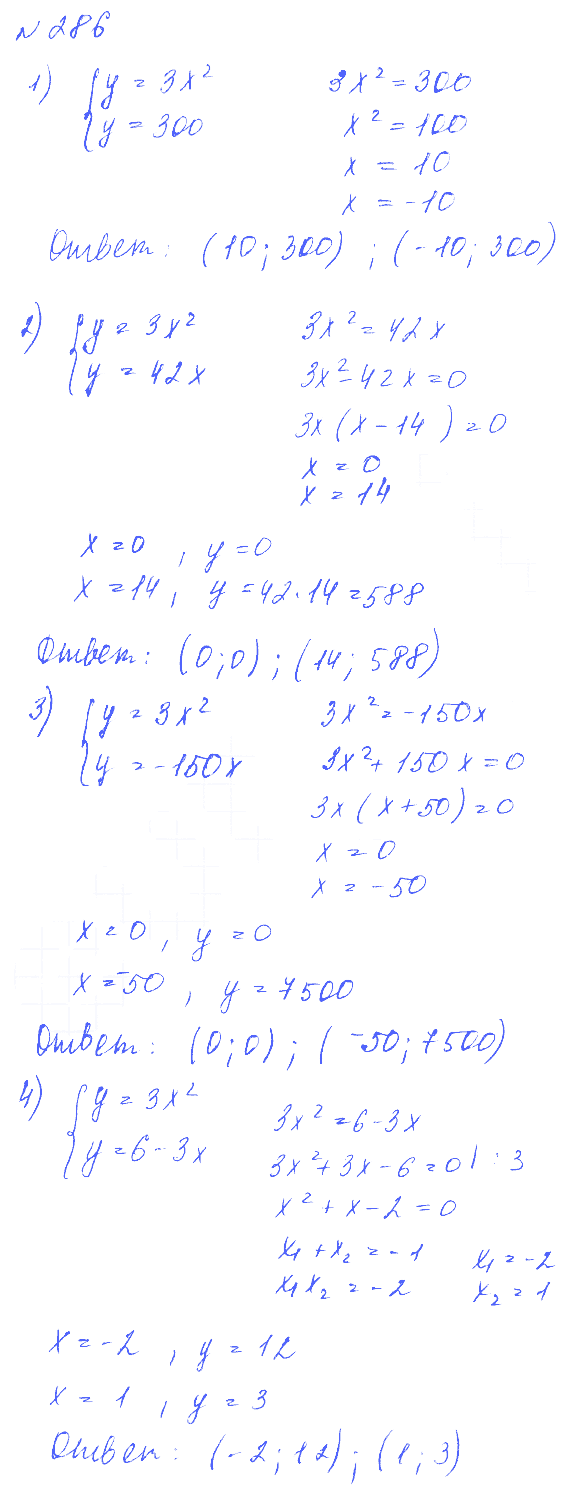 № 286
1) { y = 3x² 3x² = 300
y = 300 x² = 100
x = 10
x = -10
Ответ: (10; 300) ; (-10; 300)
2) { y = 3x² 3x² = 42x
y = 42x 3x² - 42x = 0
3x (x - 14) = 0
x = 0
x = 14
x = 0 , y = 0
x = 14 , y = 42 · 14 = 588
Ответ: (0; 0) ; (14; 588)
3) { y = 3x² 3x² = -150x
y = -150x 3x² + 150x = 0
3x (x + 50) = 0
x = 0
x = -50
x = 0 , y = 0
x = -50 , y = 7500
Ответ: (0; 0) ; (-50; 7500)
4) { y = 3x² 3x² = 6 - 3x
y = 6 - 3x 3x² + 3x - 6 = 0 | : 3
x² + x - 2 = 0
x₁ + x₂ = -1 x₁ = -2
x₁x₂ = -2 x₂ = 1
x = -2 , y = 12
x = 1 , y = 3
Ответ: (-2; 12) ; (1; 3)